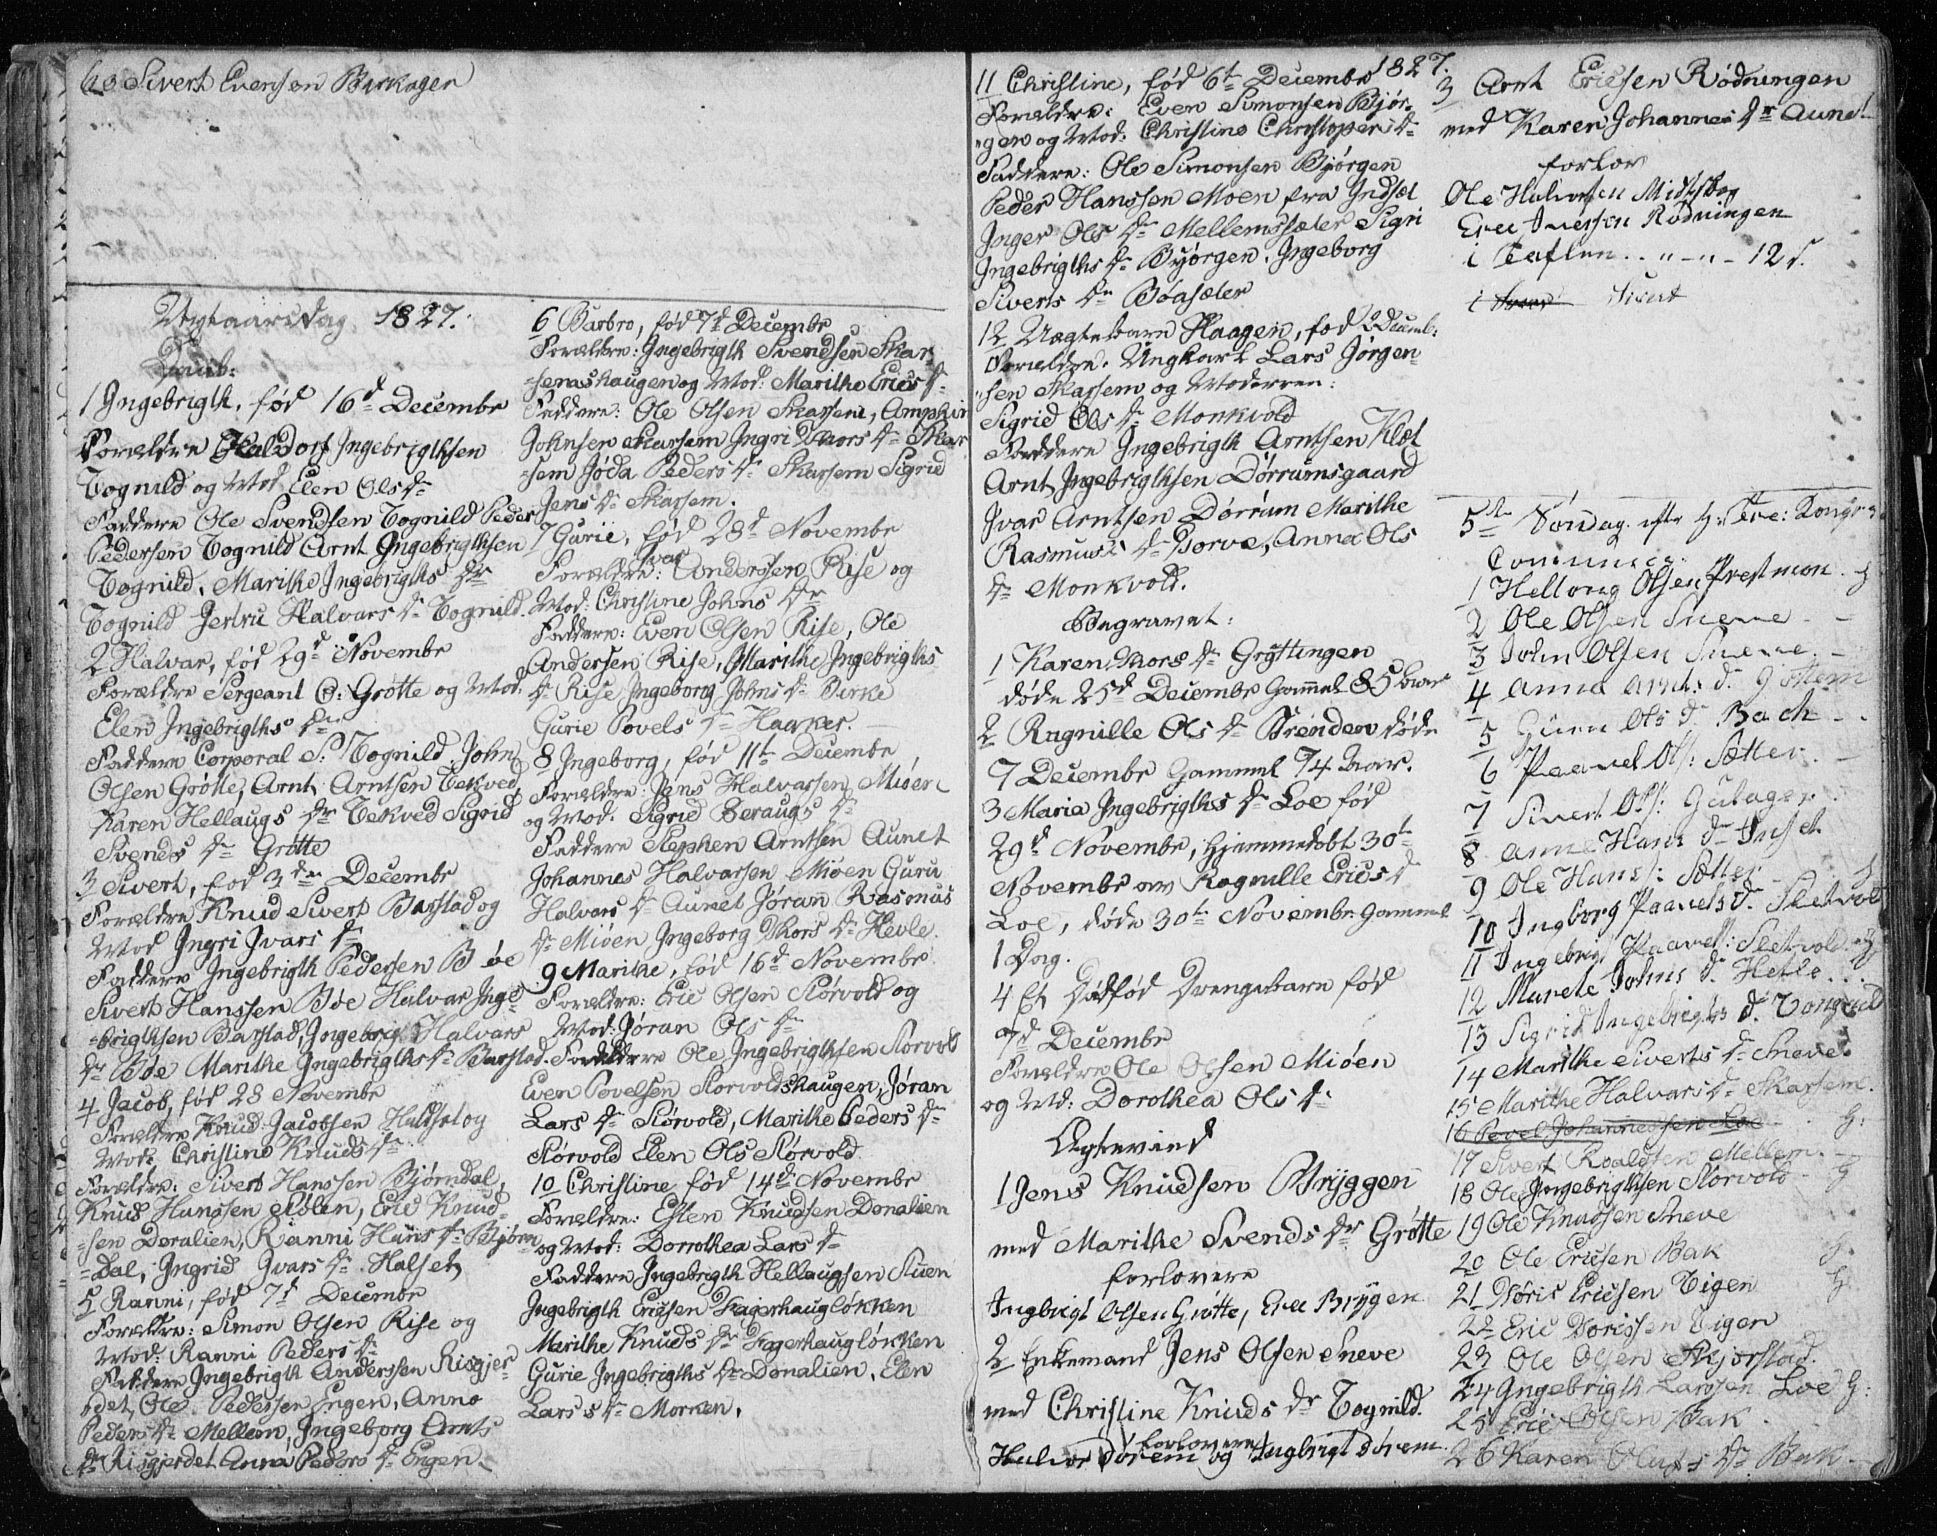 60 Sivert Evensen Birkagen
Nytaarsdag 1827.
Daab:
1 Ingebrigth, fød 16d Decembr
Forældre Haldorf Ingebrigthsen
Tognild og Mod Elen Ols Dr
Faddere Ole Svendsen Tognild Peder
Pedersen Tognild Arnt Ingebrigthsen
Tognild, Marithe Ingebrigths Dr
Tognild Jertru Halvars Dr Tognild.
2 Halvar, fød 29d Novembr
Forældre Sergeant C: Grøtte og Mod.
Elen Ingebrigths Dr
Faddere Corporal S: Tognild John
Olsen Grøtte, Arnt Arntsen Tekved
Karen Hellaugs Dr Tekved Sigrid
Svends Dr Grøtte
3 Sivert, fød 3den Decembr
Forældre Knud Siverts Barstad og
Mod Ingri Ivars Dr
Faddere Ingebrigth Pedersen Bøe
Sivert Hanssen Bøe Halvar Inge-
-brigthsen Barstad, Ingebrig Halvars
Dr Bøe Marithe Ingebrigths Dr Barstad.
4 Jacob, fød 28 Novembr
Forældre Knud Jacobsen Haldset og
Mod: Christine Knuds Dr
Forældre: Sivert Hanssen Bjørndal,
Knud Hanssen, Eric Knud-
-sen Doralien, Ranni Hans Dr Bjørn-
-dal, Ingrid Ivars Dr Halset
5 Ranni, fød 7d Decembr
Forældre: Simon Olsen Rise og
Mod: Ranni Peders Dr
Faddere Ingebrigth Anderssen Risgjer-
det, Ole Pederssen Engen, Anno
Peders Dr Mellem, Ingeborg Arnts
Dr Risgjerdet Anna Peders Dr Engen.
6 Barbro, fød 7d Decembr
Forældre: Ingebrigth Svendsen Skar-
-semshaugen og Mod: Marithe Erics Dr
Faddere: Ole Olsen Skarsem, Amphin
Johnsen Skarsem Ingri Thors Dr Skar
-sem Jøda Peders Dr Skarsem Sigrid
Jens Dr Skarsem.
7 Gurie, fød 28d Novembr
Forældre: Ivar Anderssen Rise og
Mod: Christine Johns Dr
Faddere: Even Olsen Rise, Ole
Andersen Rise, Marithe Ingebrigths
Dr Rise Ingeborg Johns Dr Birke
Gurie Povels Dr Haarker.
8 Ingeborg, fød 11te Decembr
Forældre: Jens Halvarsen Miøen
og Mod. Sigrid Beraugs Dr
Faddere Stephen Arntsen Aunet
Johannes Halvarsen Miøen Guru
Halvars Dr Aunet Jøran Rasmus
Dr Miøen Ingeborg Thors Dr Hevle.
9 Marithe, fød 16d Novembr
Forældre: Eric Olsen Storvold og
Mod: Jøran Ols Dr
Faddere Ole Ingebrigthsen Storvold
Even Povelsen Storvoldshaugen, Jøran
Lars Dr Storvold, Marithe Peders Dr
Storvold Elen Ols Storvold
10 Christine fød 14de Novembr
Forældre: Esten Knudsen Donalien
og Mod: Dorrothea Lars Dr
Faddere Ingebrigth Hellaugsen Stuen
Ingebrigth Ericsen Fagerhaugløkken
Marithe Knuds Dr Fagerhaugløkken
Gurie Ingebrigths Dr Donalien, Elen
Lars s Dr Morken.
1827.
11 Christine, fød 6te Decembr
Forældre: Even Simonsen Bjør-
-gen og Mod: Christine Christopers Dr
Faddere: Ole Simonsen Bjørgen
Peder Hanssen Moen fra Indset
Inger Ols Dr Mellemsæter Sigri
Ingebrigths Dr Bjørgen. Ingeborg
Siverts Dr Bøasæter
12 Uægtebarn Haagen, fød 2 Decmb:
Forældre. Ungkarl Lars Jørgen-
-sen Skarsem og Moderen:
Sigrid Ols Dr Monkvold
Faddere Ingebrigth Arntsen Klet
Arnt Ingebrigthsen Dørrumsgaard
Ivar Arntsen Dørrum Marithe
Rasmus Dr Torve, Anna Ols
Dr Monkvold.
Begravet:
1 Karen Thors Dr Grøttingen
døde 25d Decembr Gammel 85 Aar
2 Ragnille Ols Dr Brenden døde
7 Decembr Gammel 74 Aar.
3 Maria Ingebrigths Dr Loe fød
29d Novembr, hjemmedøbt 30te
Novembr av Ragnille Erics Dr
Loe, døde 30te Novembr Gammel
1 Dag.
4 Et Dødfød Drengebarn fød
7d Decembr
Forældre Ole Olsen Miøen
og Md: Dorothea Ols Dr
Egteviet
1 Jens Knudsen Bryggen
med Marithe Svends Dr Grøtte
forlovere
Ingbrigt Olsen Grøtte, Eric Brygen
2 Enkemand Jens Olsen Sneve
med Christine Knuds Dr Tognild.
forlovere
Halvor Dørem og Ingbrigt Dörem
3 Arnt Ericsen Rødningen
med Karen Johannes Dr Aunet
forlov
Ole Halvorsen Midtskog
Eric Iversen Rødningen
i Taflen .. " - " - 12 s.
5te Søndag efter H: Tre: Konger
Communic:
1 Hellovg Olsen Prestmon
2 Ole Olsen Sneve
3 John Olsen Sneve
4 Anne Arnts D. Gottem
5 Guru Ols D. Bach
6 Paavel Ols: Sætter
7 Sivert Ols: Gutager
8 Anne Hans Dr Indset
9 Ole Hans: Sætter
10 Ingborg Paavels D. Sletvold
11 Ingebrigt Paavels: Sletvold
12 Marete Johns D. Hevle
13 Sigrid Ingebrigts D. Tongnild
14 Marithe Siverts Dr Sneve.
15 Marithe Halvars Dr Skarsem.
16 Povel Johannessen Loe
17 Sivert Roaldsen Mellem.
18 Ole Ingebrigthsen Storvold
19 Ole Knudsen Sneve
20 Ole Ericsen Bak
21 Doris Ericsen Vigen
22 Eric Dorissen Vigen
23 Ole Olsen Skjørstad.
24 Ingebrigth Larssen Loe
25 Eric Olsen Bak
26 Karen Olufs Dr Bak